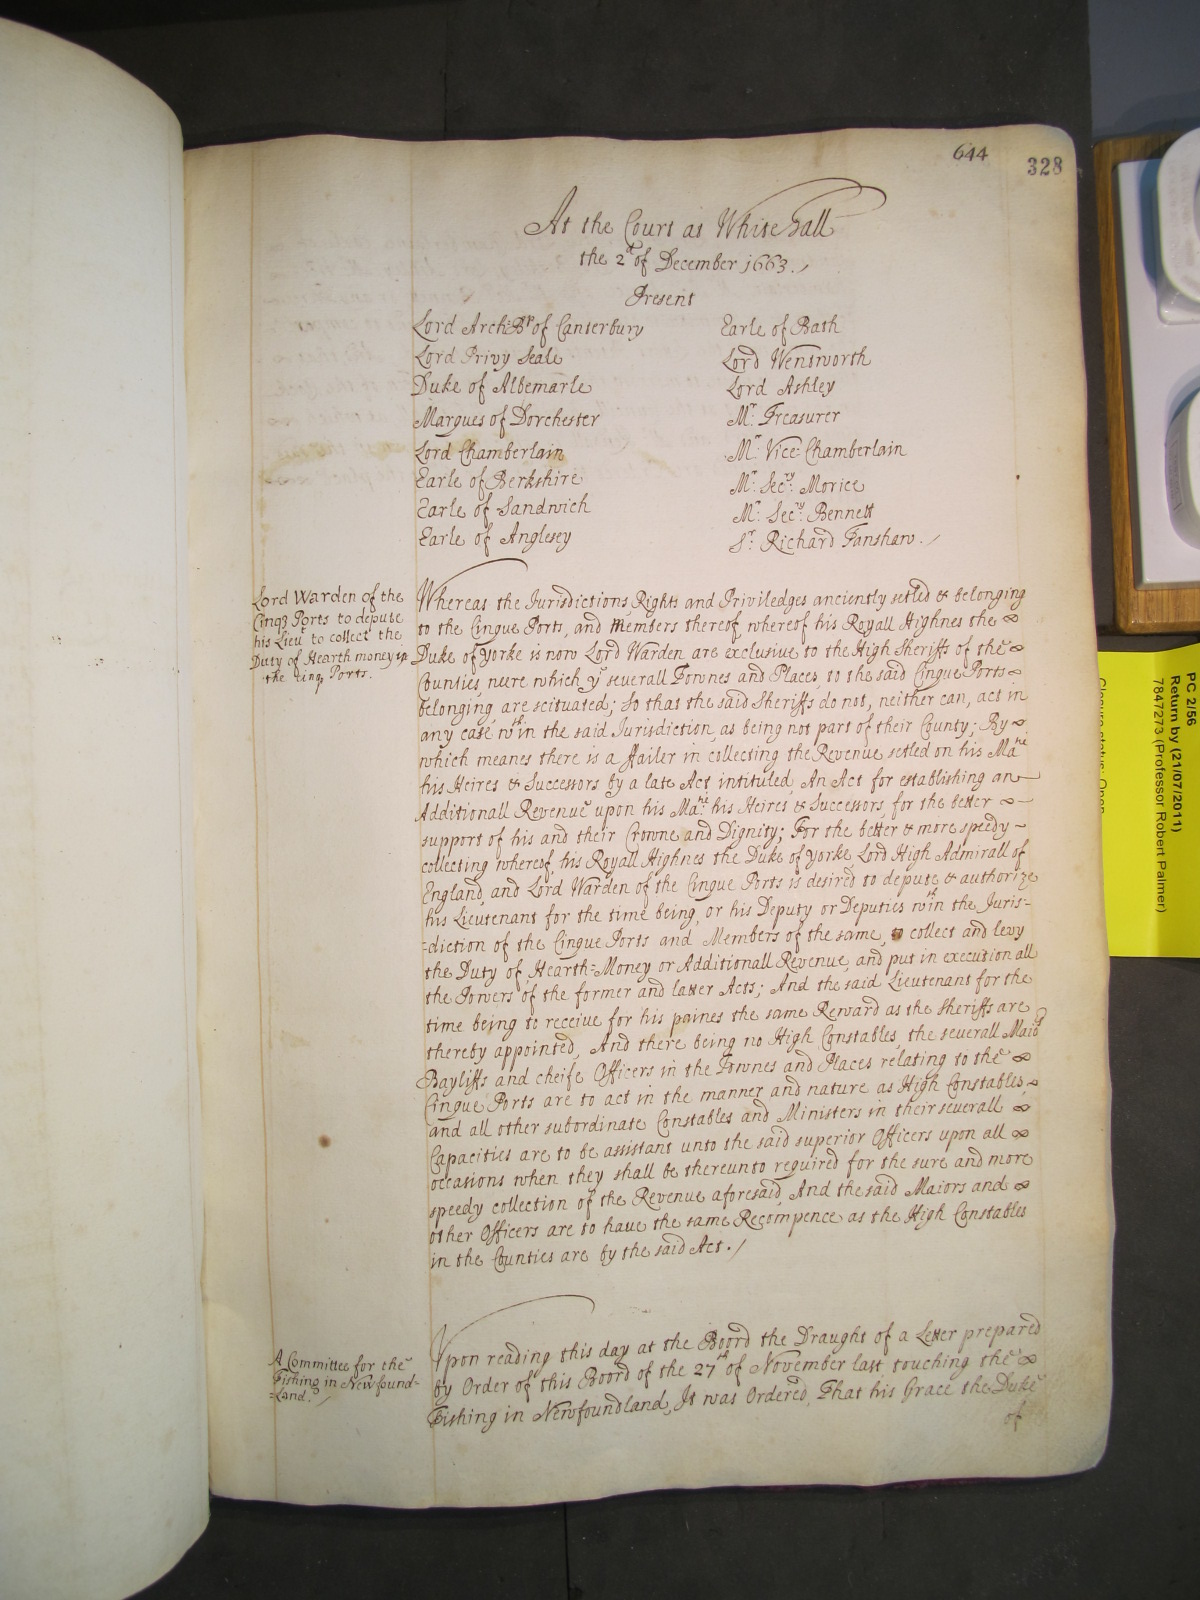 644
328
At the Court at Whitehall
the 2d of December 1663.
Present
Lord Arch:Bp of Canterbury
Lord Privy Seale
Duke of Albemarle
Marques of Dorchester
Lord Chamberlain
Earle of Berkshire
Earle of Sandwich
Earle of Anglesey
Earle of Bath
Lord Wentworth
Lord Ashley
Mr. Treasurer
Mr. Vice-Chamberlain
Mr. Secry. Morice
Mr. Secry. Bennett
Sr. Richard Fanshaw.
Lord Warden of the
Cinq3 Ports to depute
his Lieut to collect the
Duty of Hearth money in
the Cinq3 Ports.
Whereas the Jurisdictions Rights and Priviledges anciently setled & belonging
to the Cinque Ports, and Members thereof, whereof his Royall Highnes the
Duke of Yorke is now Lord Warden are exclusive to the High Sheriffs of the
Counties, neere which ye severall Townes and Places, to the said Cinque Ports
belonging, are scituated; So that the said Sheriffs do not, neither can, act in
any case wthin the said Jurisdiction, as being not part of their County; By
which meanes there is a ffailer in collecting the Revenue setled on his Matie
his Heires & Successors by a late Act intituled, An Act for establishing an
Additionall Revenue upon his Matie: his Heires & Successors for the better
support of his and their Crowne and Dignity; For the better & more speedy
collecting whereof, his Royall Highnes the Duke of Yorke, Lord High Admirall of
England, and Lord Warden of the Cinque Ports is desired to depute & authorize
his Lieutenant for the time being, or his Deputy or Deputies wthin the Juris-
=diction of the Cinque Ports and Members of the same, to collect and levy
the Duty of Hearth=Money or Additionall Revenue, and put in execution all
the Powers of the former and latter Acts; And the said Lieutenant for the
time being to receive for his paines the same Reward as the Sheriffs are
thereby appointed, And there being no High Constables, the severall Maiors
Bayliffs and cheife Officers in the Townes and Places relating to the
Cinque Ports are to act in the manner and nature as High Constables,
and all other subordinate Constables and Ministers in their severall
Capacities are to be assistant unto the said superior Officers upon all
occasions when they shall be thereunto required for the sure and more
speedy collection of the Revenue aforesaid, And the said Maiors and
other Officers are to have the same Recompence as the High Constables
in the Counties are by the said Act.
A Committee for the
Fishing in Newfound-
=Land.
Vpon reading this day at the Boord the Draught of a Letter prepared
by Order of this Boord of the 27th of November last touching the
Fishing in Newfoundland, It was Ordered, That his Grace the Duke
of
PC 2/56
Return by (21/07/2011)
7847273 (Professor Robert Palmer)
Closure status: Open